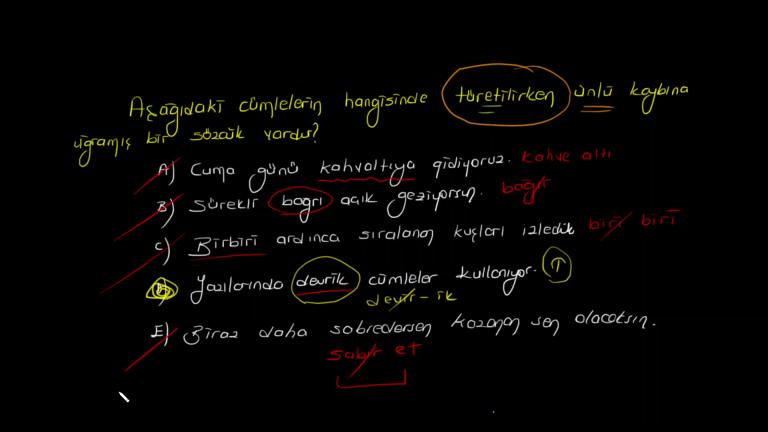 Aşağıdaki cümlelerin hangisinde türetilirken ünlü kaybına
uğramış bir sözcük vardır?
A) Cuma günü kahvaltıya gidiyoruz. kahve altı
B) Sürekli bağrı açık geziyorsun. bağır
C) Birbiri ardınca sıralanan kuşları izledik biri biri
D) Yazılarında devrik cümleler kullanıyor. T
devir - ik
E) Biraz daha sabredersen kazanan sen olacaksın.
sabır et